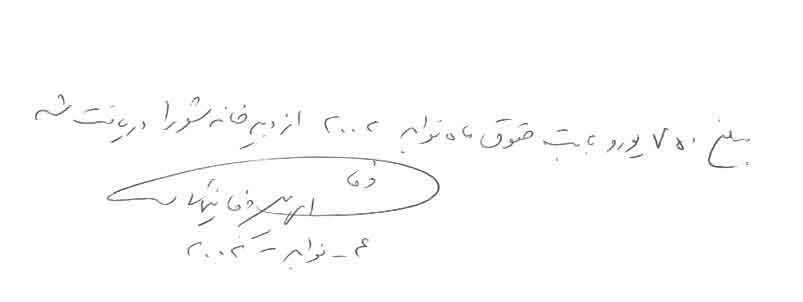 مبلغ ۷۵۰ یورو بابت حقوق ماه نوامبر ۲۰۰۲ از دبیرخانه شورا دریافت شد
وفا
۴ - نوامبر - ۲۰۰۲